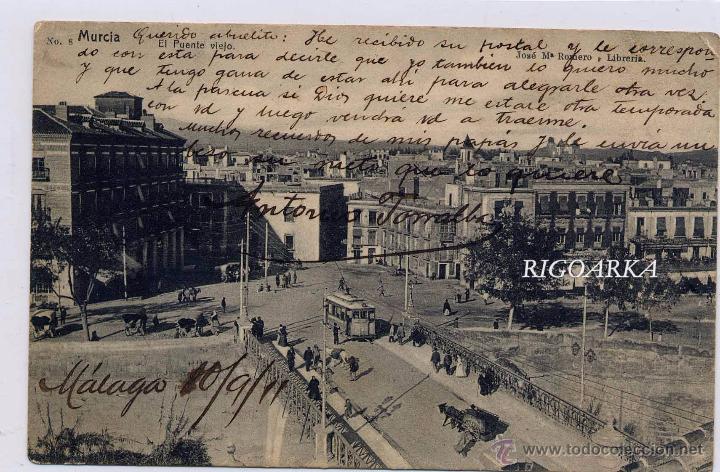 No. 8 Murcia
El Puente viejo.
José Mª Romero, Librería.
Querido abuelito: He recibido su postal y le correspon
do con esta para decirle que yo tambien lo quiero mucho
y que tengo gana de estar ahi para alegrarle otra vez
A la pascua si Dios quiere me estare otra temporada
con vd y luego vendra vd a traerme.
Muchos recuerdos de mis papás y le envia un
beso su nieto que lo quiere
Antonio Torralba
RIGOARKA
Málaga 10/9/11
todocoleccion.net